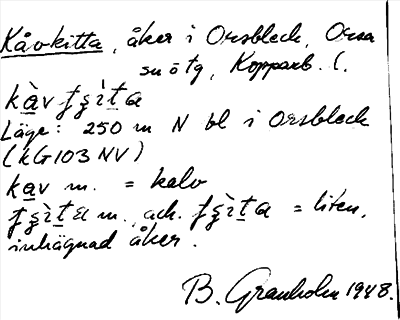 Kåvkitta, åker i Orsbleck, Orsa
sn ö tg, Kopparb. l.
kàv
Läge: 250 m N bl i Orsbleck
(kG103 NV)
kav m. = kalv
m., ack. = liten,
inhägnad åker.
B. Granholm 1948.